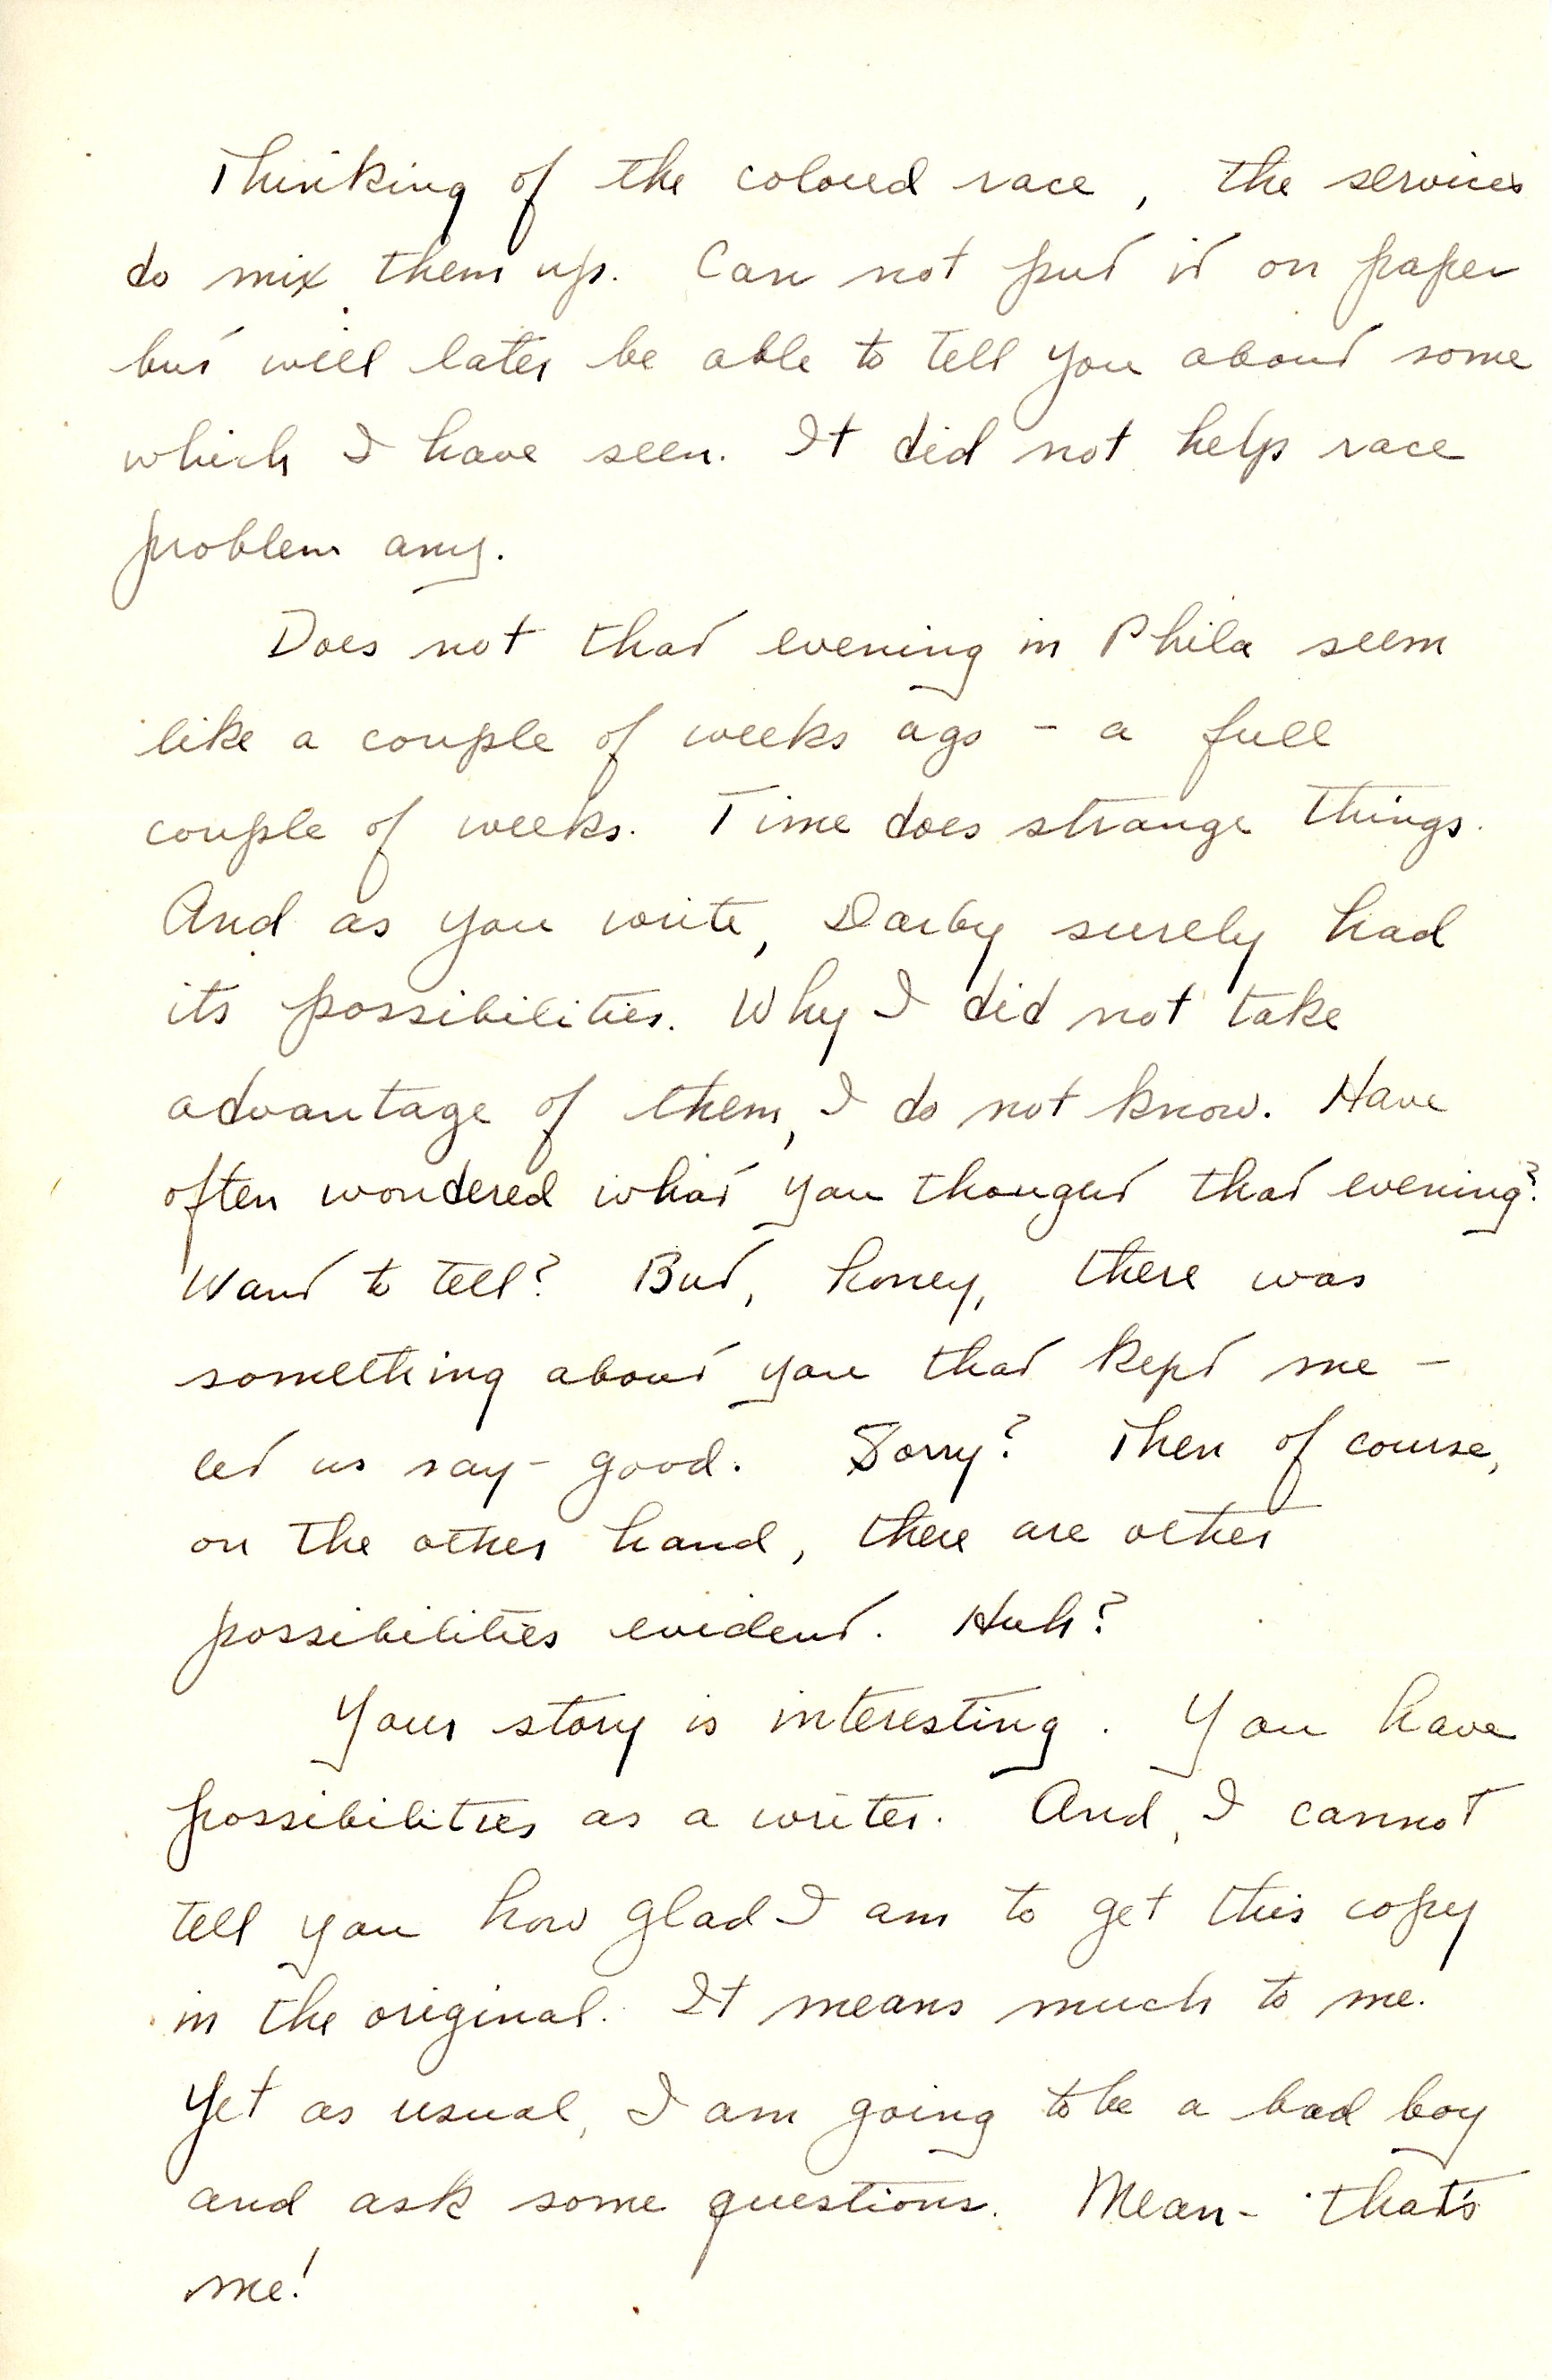 Thinking of the colored race, the services
do mix them up. Can not put it on paper
but will later be able to tell you about some
which I have seen. It did not help race
problem any.
Does not that evening in Phila seem
like a couple of weeks ago - a full
couple of weeks. Time does strange things.
And as you write, Darby surely had
its possibilities. Why I did not take
advantage of them, I do not know. Have
often wondered what you thought that evening?
Want to tell? But, honey, there was
something about you that kept me -
let us say - good. Sorry? Then of course,
on the other hand, there are other
possibilities evident. Huh?
Your story is interesting. You have
possibilities as a writer. And, I cannot
tell you how glad I am to get this copy
in the original. It means much to me.
Yet as usual, I am going to be a bad boy
and ask some questions. Mean - that's
me!